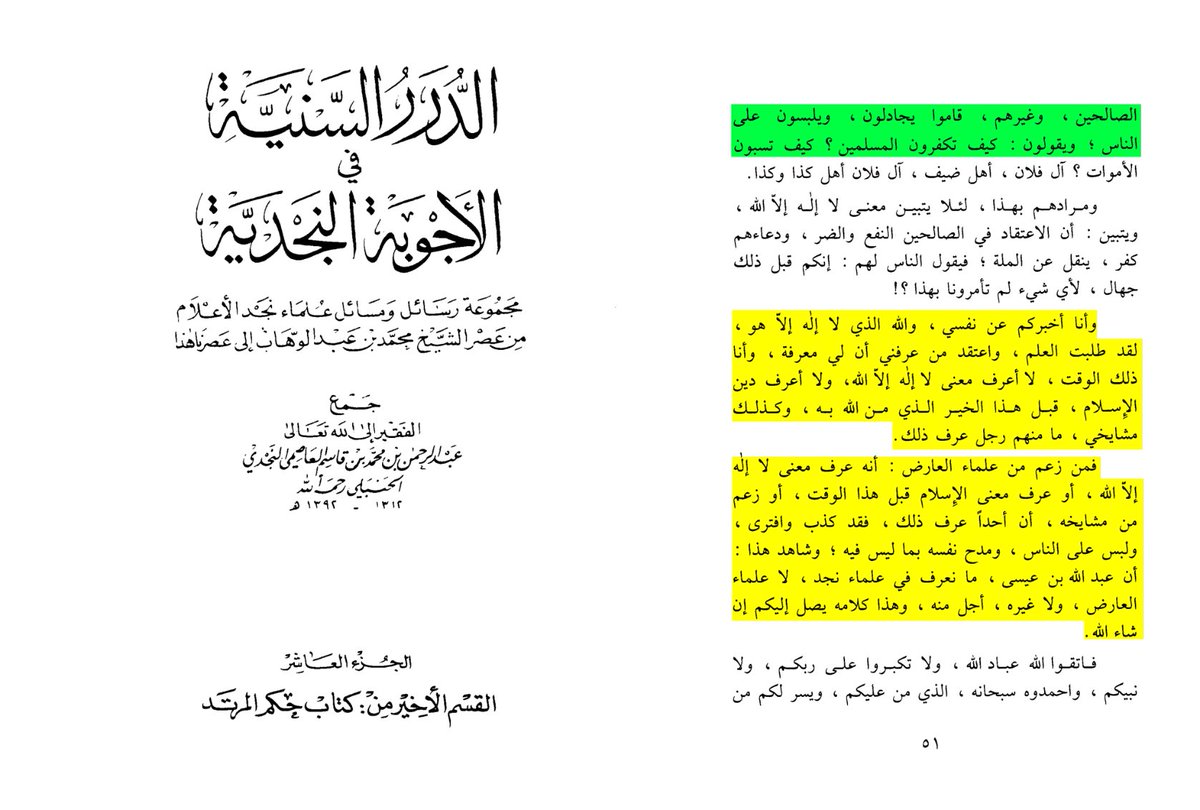 الدُّرَرُ السَّنِيَّة
في
الأَجْوِبَةِ النَّجْدِيَّة
مَجْمُوعَة رَسَائل وَمسَائل عُلماء نجد الأعْلام
مِن عَصْر الشَّيْخ محمّد بن عَبد الوهّاب إلى عَصْرنا هذا
جَمع
الفَقير إلى الله تَعَالى
عبد الرحمن بن محمّد بن قاسم العاصمي النجدي
الحنبلي رحمه الله
١٣١٢ - ١٣٩٢ هـ
الجُزء العَاشِر
القسم الأخير من: كتاب حكم المرتد
الصالحين ، وغيرهم ، قاموا يجادلون ، ويلبسون على
الناس ؛ ويقولون : كيف تكفرون المسلمين ؟ كيف تسبون
الأموات ؟ آل فلان ، أهل ضيف ، آل فلان أهل كذا وكذا.
ومرادهم بهذا ، لئلا يتبين معنى لا إلٰه إلاّ الله ،
ويتبين : أن الاعتقاد في الصالحين النفع والضر ، ودعاءهم
كفر ، ينقل عن الملة ؛ فيقول الناس لهم : إنكم قبل ذلك
جهال ، لأي شيء لم تأمرونا بهذا ؟!
وأنا أخبركم عن نفسي ، والله الذي لا إلٰه إلاّ هو ،
لقد طلبت العلم ، واعتقد من عرفني أن لي معرفة ، وأنا
ذلك الوقت ، لا أعرف معنى لا إلٰه إلاّ الله، ولا أعرف دين
الإِسلام ، قبل هذا الخير الذي من الله به ، وكذلك
مشايخي ، ما منهم رجل عرف ذلك.
فمن زعم من علماء العارض : أنه عرف معنى لا إلٰه
إلاّ الله ، أو عرف معنى الإِسلام قبل هذا الوقت ، أو زعم
من مشايخه ، أن أحداً عرف ذلك ، فقد كذب وافترى ،
ولبس على الناس ، ومدح نفسه بما ليس فيه ؛ وشاهد هذا :
أن عبد الله بن عيسى ، ما نعرف في علماء نجد ، لا علماء
العارض ، ولا غيره ، أجل منه ، وهذا كلامه يصل إليكم إن
شاء الله.
فاتقوا الله عباد الله ، ولا تكبروا على ربكم ، ولا
نبيكم ، واحمدوه سبحانه ، الذي من عليكم ، ويسر لكم من
٥١